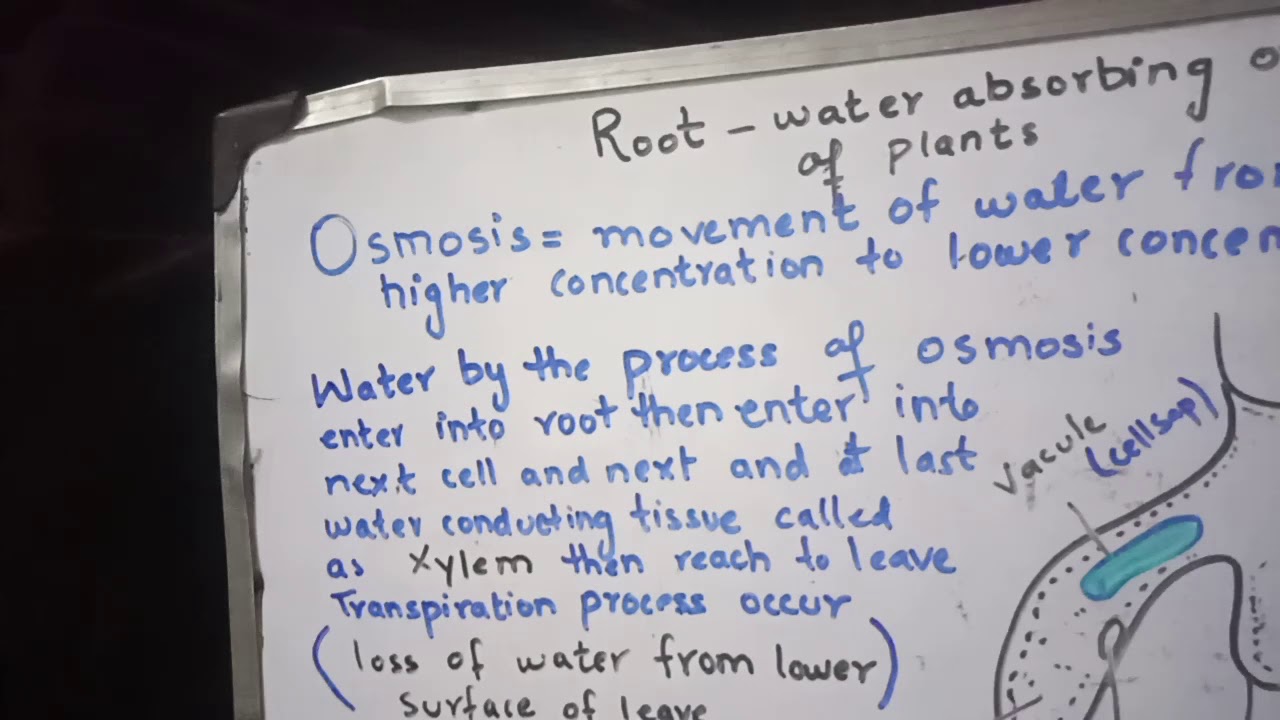 Root - water absorbing o
of plants
Osmosis = movement of water from
higher concentration to lower concen
Water by the process of osmosis
enter into root then enter into
next cell and next and at last
water conducting tissue called
as Xylem then reach to leave
Transpiration process occur
(loss of water from lower)
surface of leave
Vacule
(cellsap)